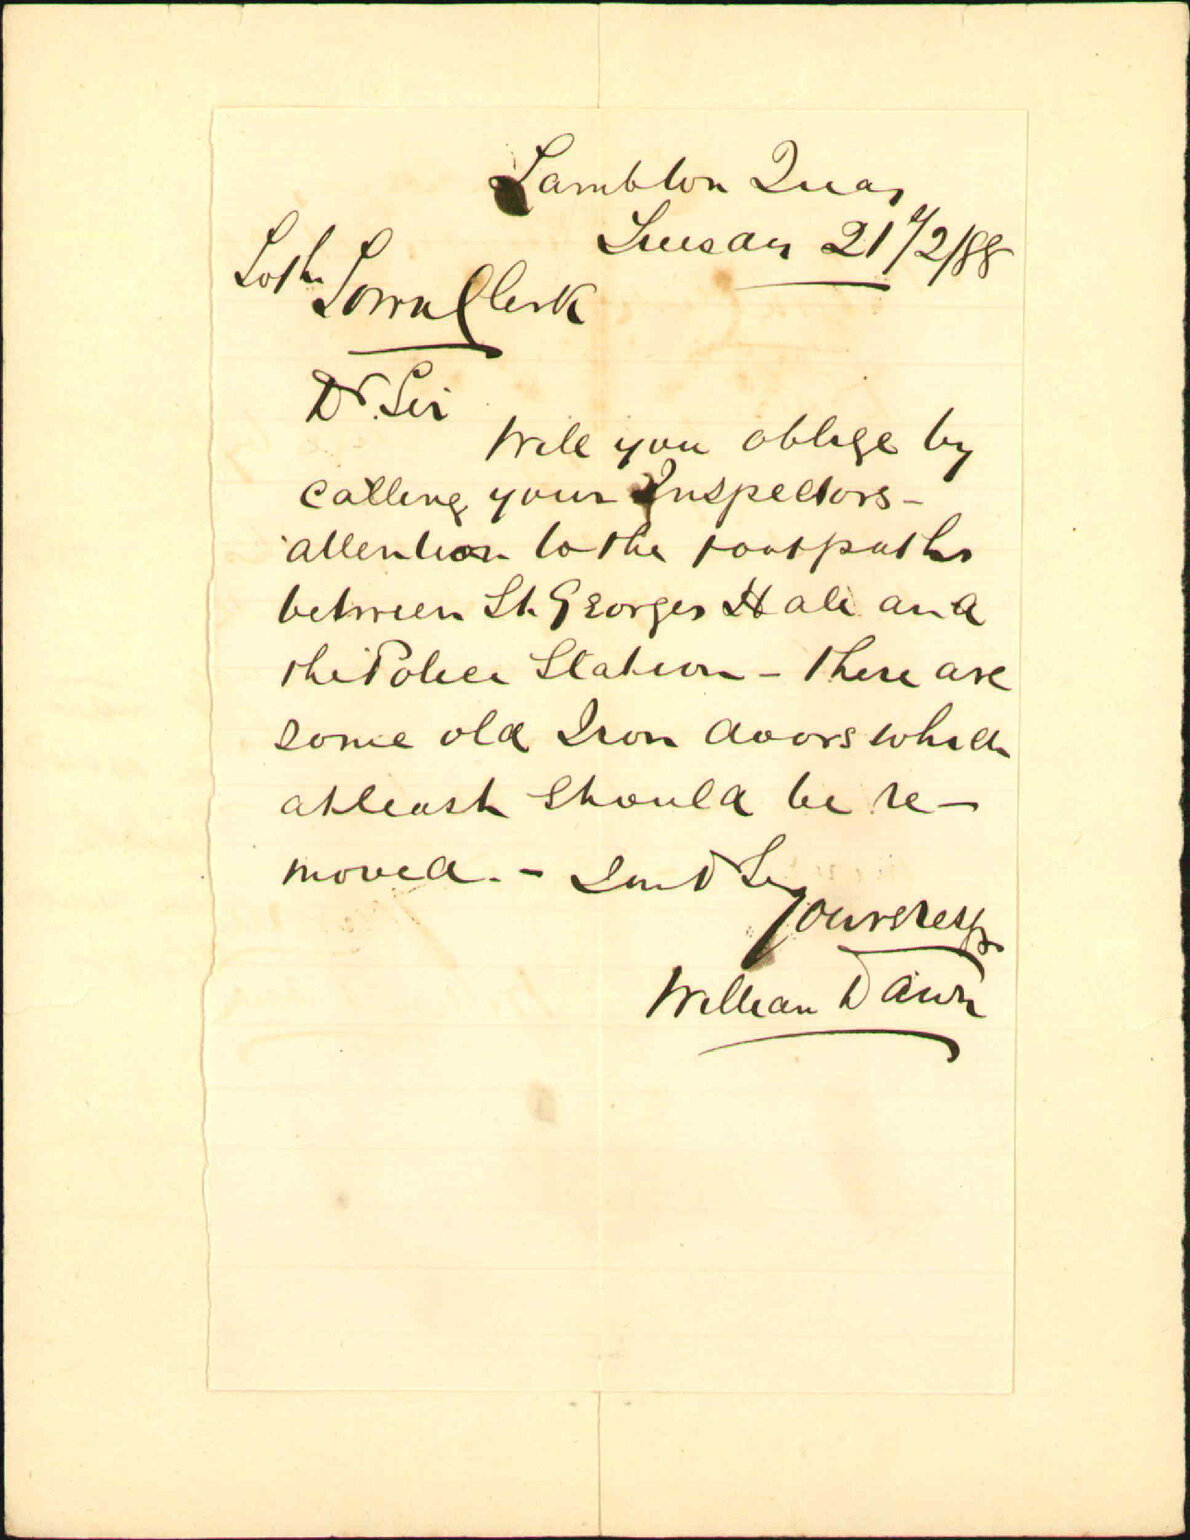 Lambton Quay
Tuesday 21/2/88
To the
Town Clerk
Dr. Sir
Will you oblige by
calling your Inspectors -
attention to the footpaths
between St. Georges Hall and
the Police Station - there are
some old Iron doors which
at least should be re-
moved. -
Yours resp
William Dawn